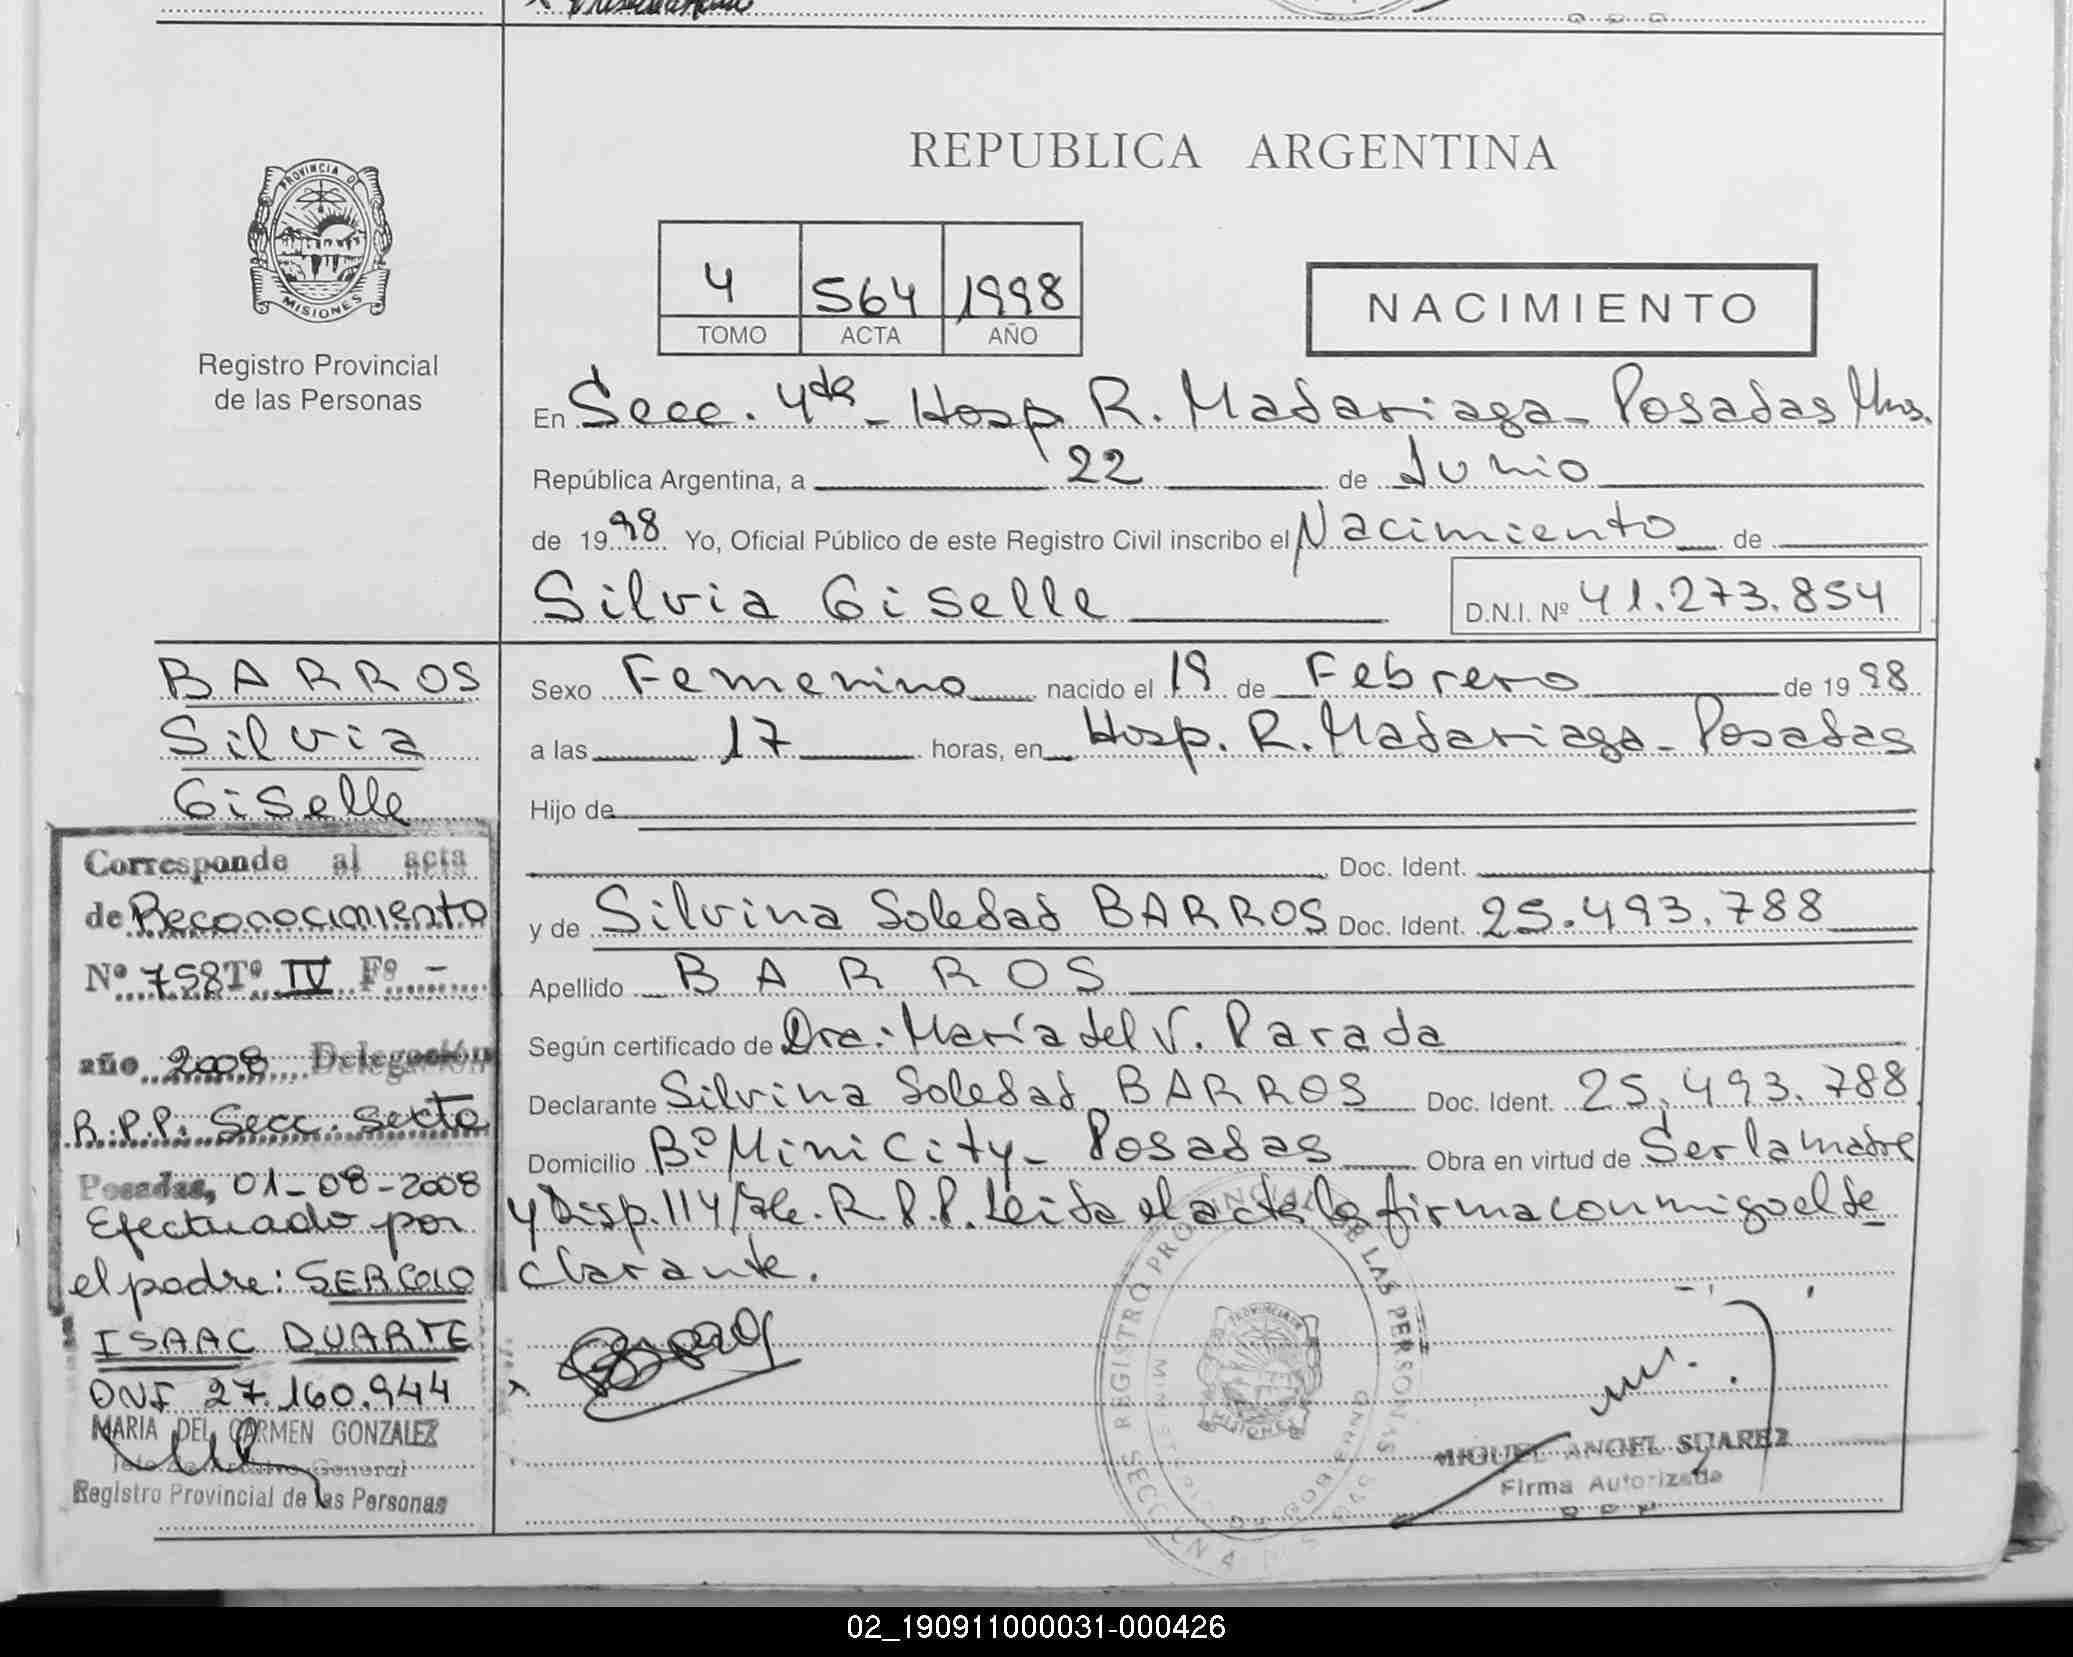 REPUBLICA ARGENTINA
PROVINCIA DE
MISIONES
Registro Provincial
de las Personas
4 564 1998
TOMO ACTA AÑO
NACIMIENTO
En Secc. 4ta - Hosp. R. Madariaga - Posadas Mns.
República Argentina, a 22 de Junio
de 1998 Yo, Oficial Público de este Registro Civil inscribo el Nacimiento de
Silvia Giselle D.N.I. Nº 41.273.854
BARROS
Silvia
Giselle
Sexo Femenino nacido el 19 de Febrero de 1998
a las 17 horas, en Hosp. R. Madariaga - Posadas
Hijo de
Doc. Ident.
y de Silvina Soledad BARROS Doc. Ident. 25.493.788
Apellido BARROS
Según certificado de Dra. María del V. Parada
Declarante Silvina Soledad BARROS Doc. Ident. 25.493.788
Domicilio Bº Mini City - Posadas Obra en virtud de Ser la madre
y Disp. 114/ R.P.P. Leida el acta la firma conmigo el de
clarante.
Corresponde al acta
de Reconocimiento
Nº 758 Tº IV Fº -
año 2008 Delegación
R.P.P. Secc. Sexta
Posadas, 01-08-2008
Efectuado por
el padre: SERGIO
ISAAC DUARTE
DNI 27.160.944
MARIA DEL CARMEN GONZALEZ
General
Registro Provincial de las Personas
REGISTRO PROVINCIAL DE LAS PERSONAS
MINISTERIO DE GOBIERNO
SECCION 4
MIGUEL ANGEL SUAREZ
Firma Autorizada
02_190911000031-000426